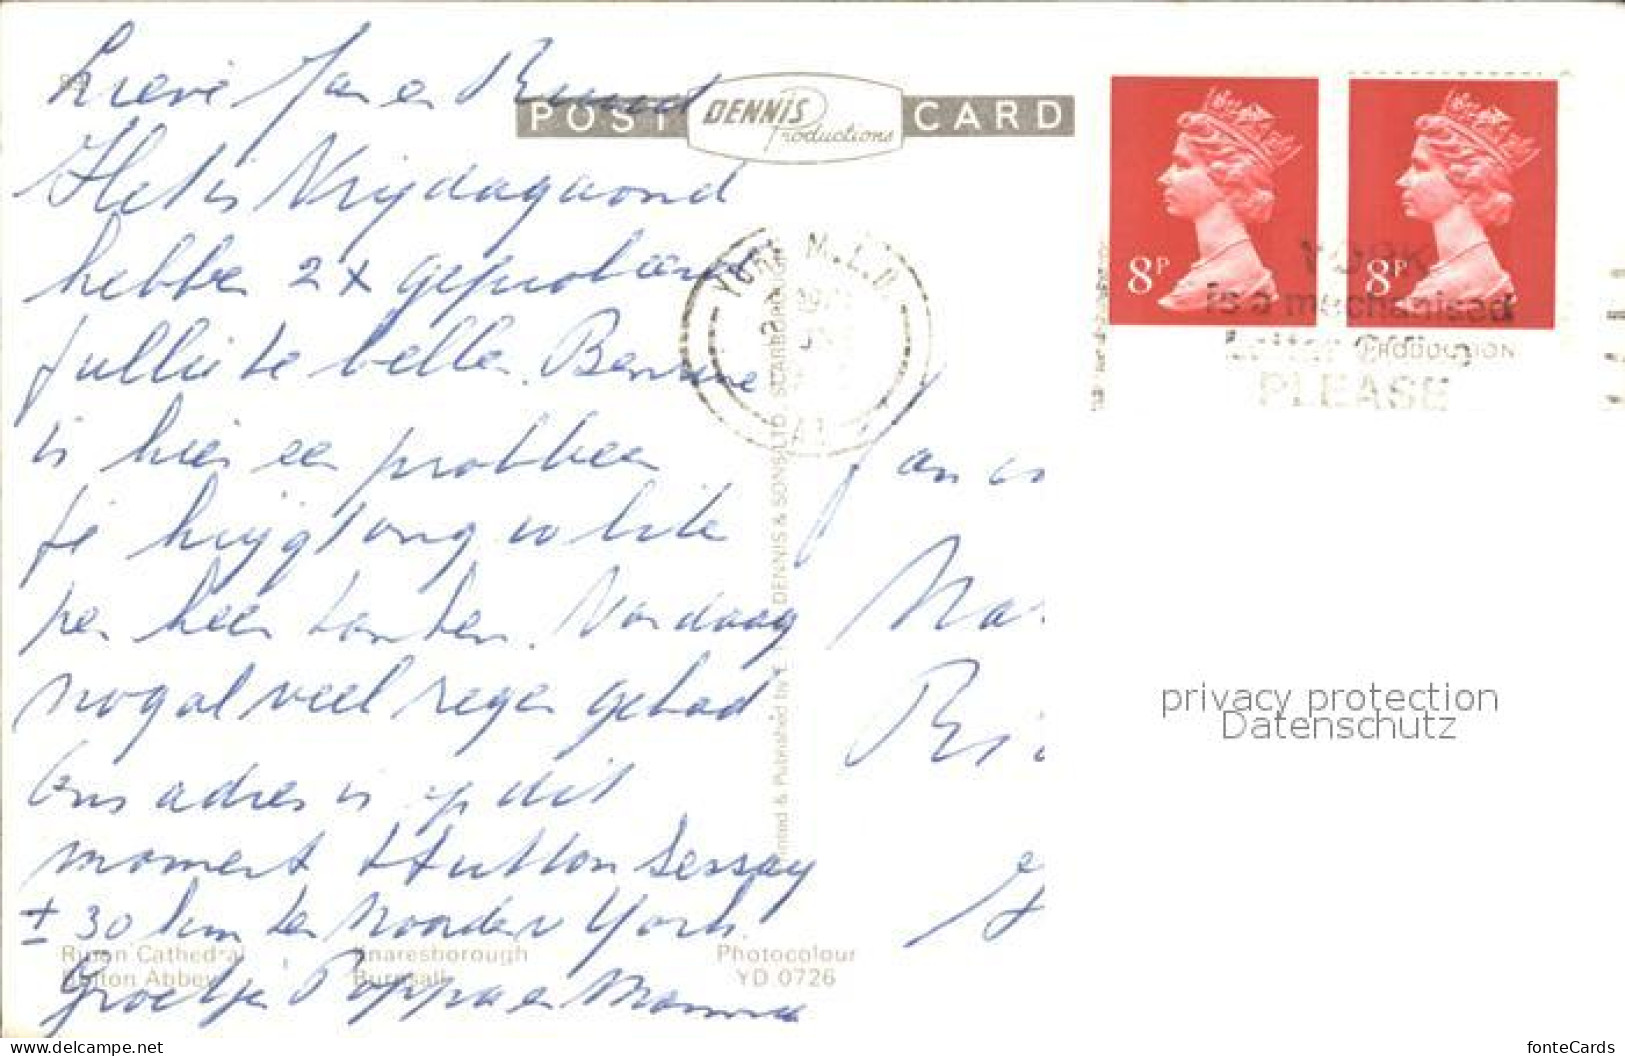 Lieve Jan en Ruud
POST DENNIS Productions CARD
Het is Vrijdagavond
hebben 2x geprobeerd
jullie te bellen. Benzine
is hier een probleem
je krijgt ongv 10 liter
per keer tanken. Vandaag
nogal veel regen gehad
Ons adres is op dit
moment Hutton Sessay
± 30 km ten Noorden v York.
Groetjes Pappa en Mamma
YORK M.L.O.
8P
8P
YORK
is a mechanised
PLEASE
PRODUCTION
Printed & Published by E. T. W. DENNIS & SONS LTD. SCARBOROUGH
Jan en
Ma
Ri
Ripon Cathedral
Knaresborough
Bolton Abbey
Burnsall
Photocolour
YD 0726
privacy protection
Datenschutz
www.delcampe.net
fonteCards